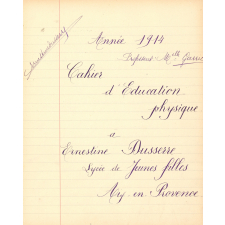 Année 1914
Professeur Melle
Cahier
d'Education
physique
a
Ernestine Dusserre
Lycée de Jeunes filles
Aix en Provence